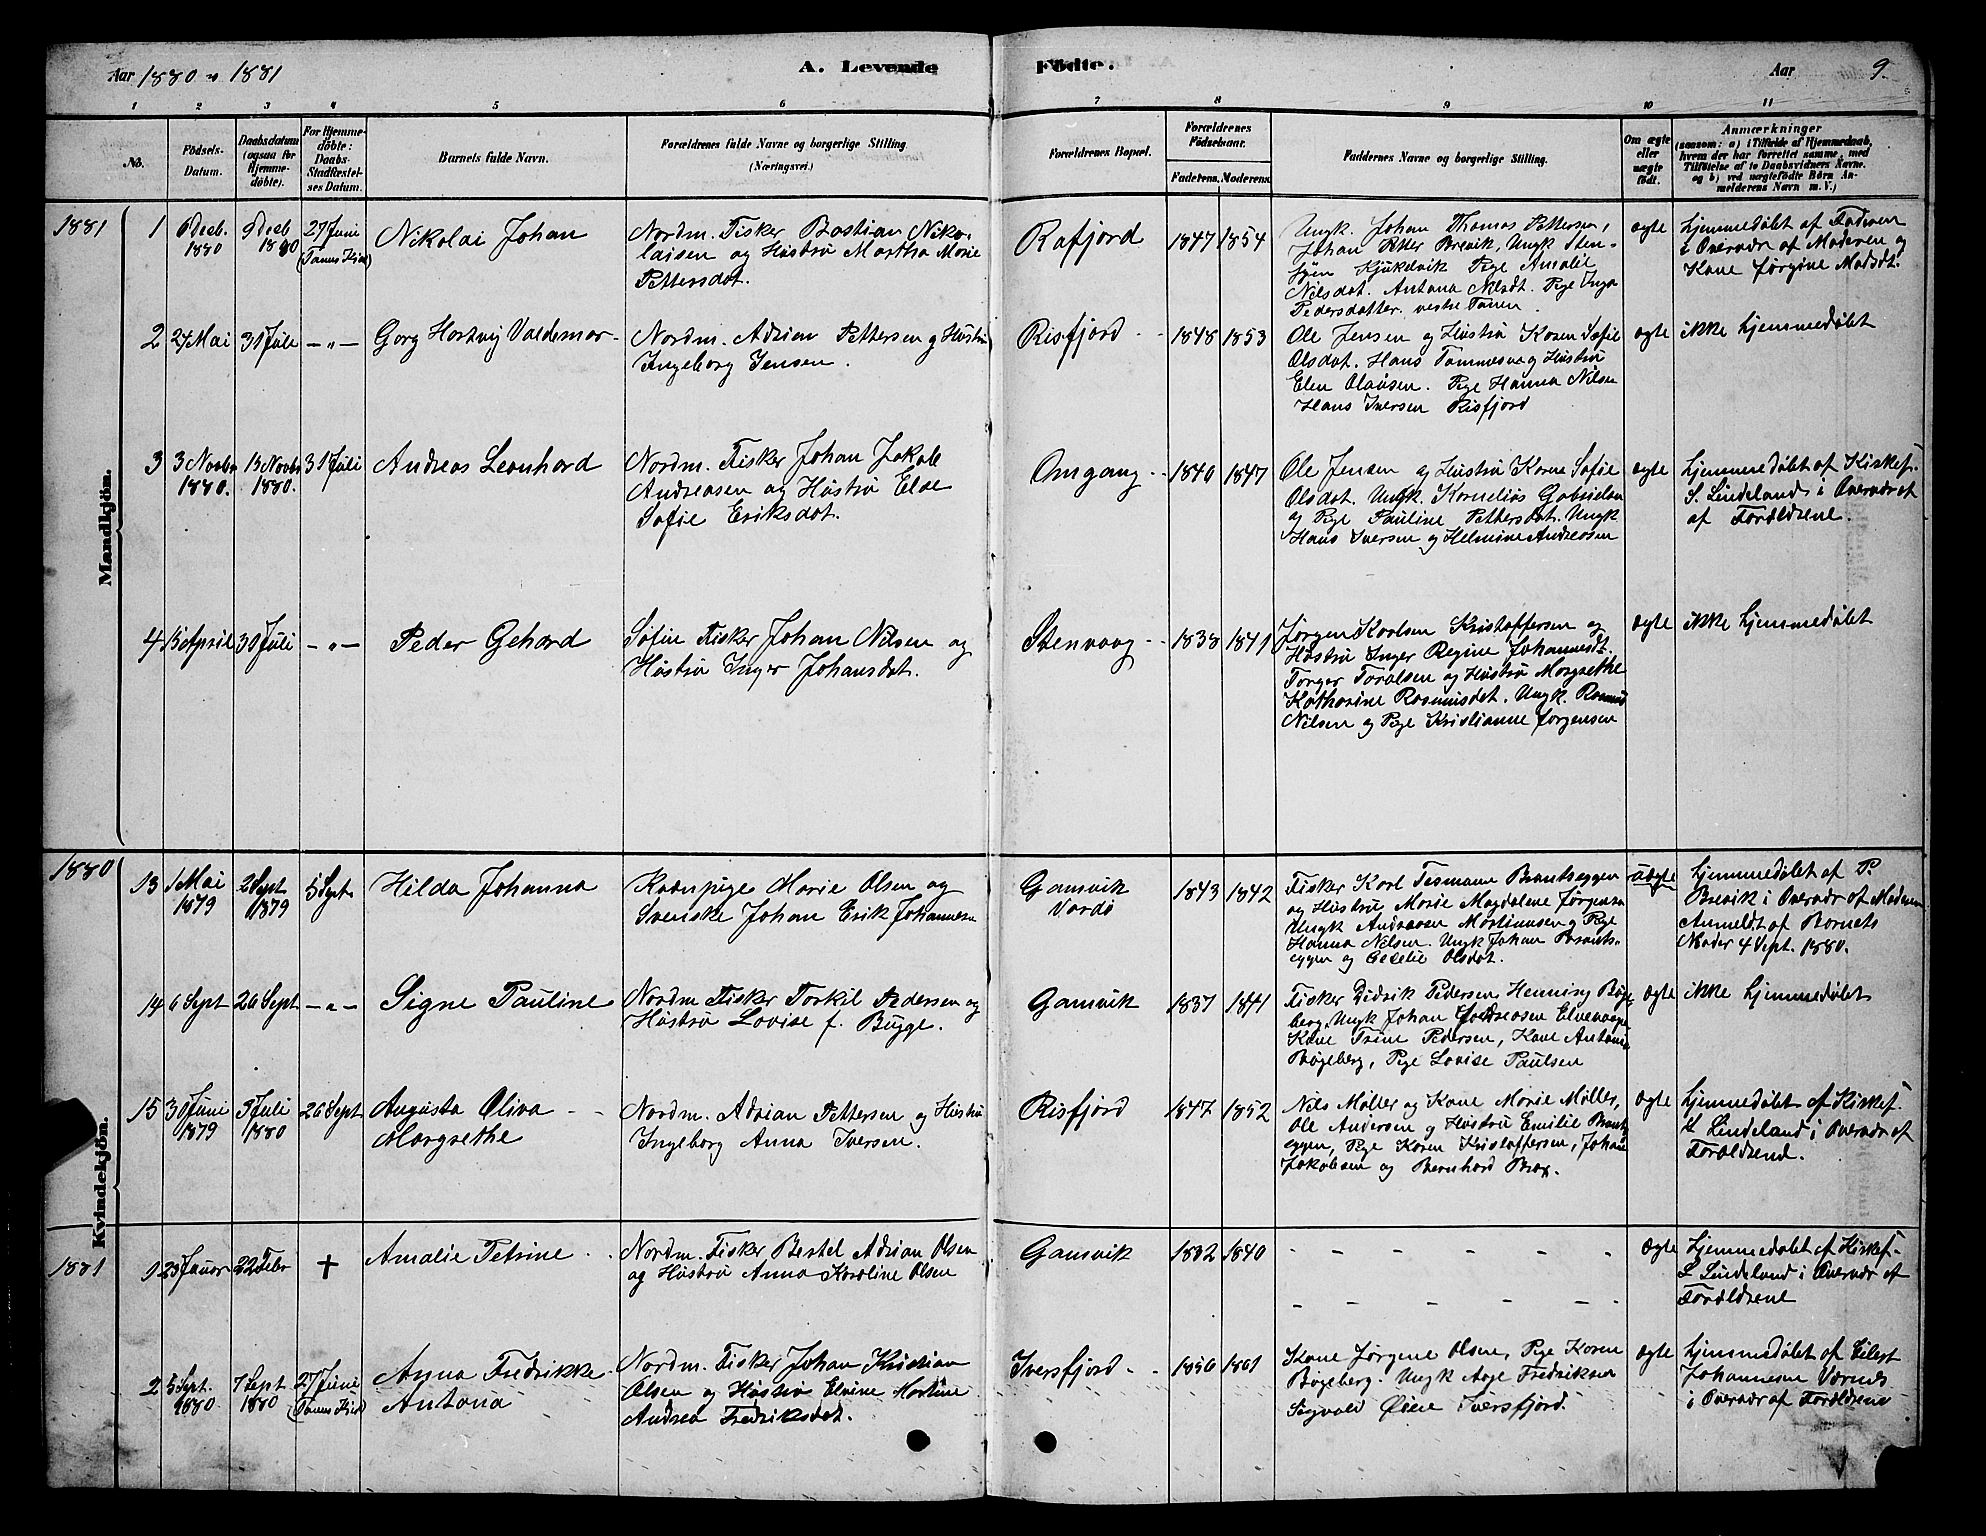 Aar 1880 & 1881
A. Levende Födte.
Aar 9.
1 2 3 4 5 6 7 8 9 10 11
No.
Födsels-Datum.
Daabsdatum (ogsaa for Hjemme-döbte).
For Hjemme-döbte: Daabs-Stadfæstel-ses Datum.
Barnets fulde Navn.
Forældrenes fulde Navne og borgerlige Stilling (Næringsvei.)
Forældrenes Bopæl.
Forældrenes Födselsaar.
Faderens. Moderens.
Faddernes Navne og borgerlige Stilling.
Om ægte eller uægte födt.
Anmærkninger
(saasom: a) i Tilfælde af Hjemmedaab, hvem der har forrettet samme, med Tilföielse af to Daabsvidners Navne. og b) ved uægtefödte Börn An-melderens Navn m. V.)
Mandkjön.
1881
1 6 Decb. 1880
9 Decb 1880
27 Juni (Tanens Kirke)
Nikolai Johan
Nordm. Fisker Bastian Niko-
laisen og Hustru Martha Marie
Pettersdat.
Rafjord
1847 1854
Ungk. Johan Thomas Pettersen,
Johan Petter Brevik, Ungk Sten-
Kjukelvik Pige Amalie
Nilsdat. Antona Nilsdt. Pige Inga
Pedersdatter vestre Tanen
ægte
hjemmedøbt af Faderen
i Overvær af Moderen og
Kone Jørgine Madsdt.
2 24 Mai
31 Juli
– " –
Georg Hartvig Valdemar
Nordm. Adrian Pettersen og Hustru
Ingeborg Jensen.
Risfjord
1848 1853
Ole Jensen og Hustru Karen Sofie
Olsdat. Hans Tommesen og Hustru
Elen Olausen. Pige Hanna Nilsen
Hans Iversen Risfjord
ægte
ikke hjemmedøbt
3 3 Novbr 1880.
15 Novbr 1880.
31 Juli
Andreas Leonhard
Nordm. Fisker Johan Jakob
Andreasen og Hustru Elde
Sofie Eriksdat.
Omgang
1840 1847
Ole Jensen og Hustru Karen Sofie
Olsdat. Ungk. Kornelius Gabrielsen
og Pige Pauline Pettersdat. Ungk
Hans Iversen og Helmine Andreasen
ægte
hjemmedøbt af Kirkes.
S. Lindeland i Overvær af
af Forældrene.
4 15 April
30 Juli
– " –
Peder Gehard
Søfin Fisker Johan Nilsen og
Hustru Inger Johansdat.
Stenvaag
1838 1841
Jørgen Karlsen Kristoffersen og
Hustru Inger Regine Johannesdt.
Torger Toralsen og Hustru Margrethe
Katharine Rasmusdat. Ungk. Rasmus
Nilsen og Pige Kristianne Jørgensen
ægte
ikke hjemmedøbt
Kvindekjön.
1880
13 1 Mai 1879
2 Sept 1879
5 Sept
Hilda Johanna
Kvænpige Marie Olsen og
Svenske Johan Erik Johannesen
Gamvik
Vardø
1843 1842
Fisker Karl Tesmann Brantseggen
og Hustru Marie Magdalene Jørgensen
Ungk Andreasen Martinusen og Pige
Hanna Nilsen. Ungk Johan Brants-
eggen og Cecelie Olsdat.
uægte
hjemmedøbt af P.
Brevik i Overvær af Moderen
Anmeldt af Barnets
Moder 4 Sept. 1880.
14 6 Sept
26 Sept
– " –
Signe Pauline
Nordm Fisker Torkil Pedersen og
Hustru Lovise f. Bugge.
Gamvik
1837 1841
Fisker Didrik Pedersen, Henning Bøge-
berg, Ungk Johan Andreasen Elvenaapen
Kone Trine Pedersen, Kone Antonie
Bøgeberg, Pige Lovise Paulsen
ægte
ikke hjemmedøbt
15 30 Juni 1879
5 Juli 1880
26 Sept
Augusta Oliva
Margrethe
Nordm. Adrian Pettersen og Hustru
Ingeborg Anna Iversen.
Risfjord
1847 1852
Nils Møller og Kone Marie Møller,
Ole Andersen og Hustru Emilie Brant-
eggen, Pige Karen Kristoffersen, Johan
Jakobsen og Bernhard Brox.
ægte
hjemmedøbt af Kirkes.
L Lindeland i Overvær af
Forældrene.
1881
1 23 Januar
22 Febr
+
Amalie Petrine
Nordm. Fisker Bertel Adrian Olsen
og Hustru Anna Karoline Olsen
Gamvik
1832 1840
– – – – – –
– – – – – –
ægte
hjemmedøbt af Kirkes.
L Lindeland i Overvær af
Forældrene
2 5 Sept. 1880
7 Sept 1880
27 Juni (Tanens Kirke)
Anna Fredrikke
Antona
Nordm. Fisker Johan Kristian
Olsen og Hustru Elvine Martine
Andrea Fredriksdat.
Iversfjord
1850 1861
Kone Jørgene Olsen, Pige Karen
Bøgeberg. Ungk Aage Fredriksen
Sigvald Øien Iversfjord.
ægte
hjemmedøbt af Eilert
Johannesen Varnes
i Overvær af Forældrene